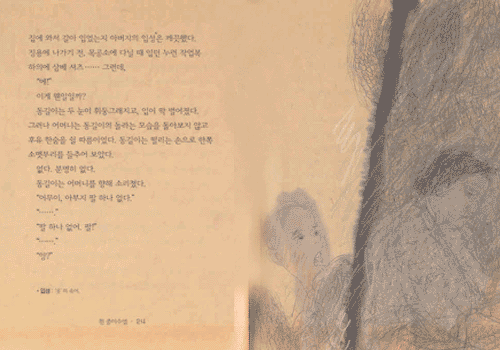 집에 와서 갈아 입었는지 아버지의 입성은 깨끗했다.
징용에 나가기 전, 목공소에 다닐 때 입던 누런 작업복
하의에 삼베 셔츠…… 그런데,
"에!"
이게 웬일일까?
동길이는 두 눈이 휘둥그래지고, 입이 딱 벌어졌다.
그러나 어머니는 동길이의 놀라는 모습을 돌아보지 않고
후유 한숨을 쉴 따름이었다. 동길이는 떨리는 손으로 한쪽
소맷부리를 들추어 보았다.
없다. 분명히 없다.
동길이는 어머니를 향해 소리쳤다.
"어무이, 아부지 팔 하나 없다."
"……."
"팔 하나 없어, 팔!"
"……."
"잉?"
• 입성 : '옷'의 속어.